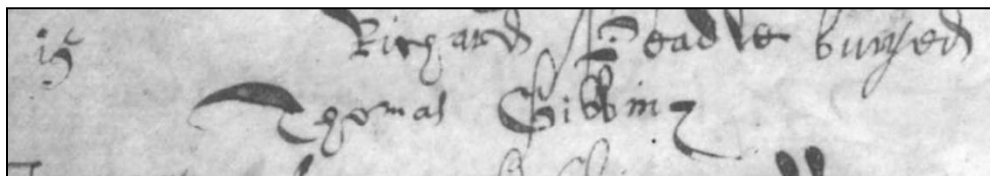 15 Richard Beadle buryed
Thomas Gibbins